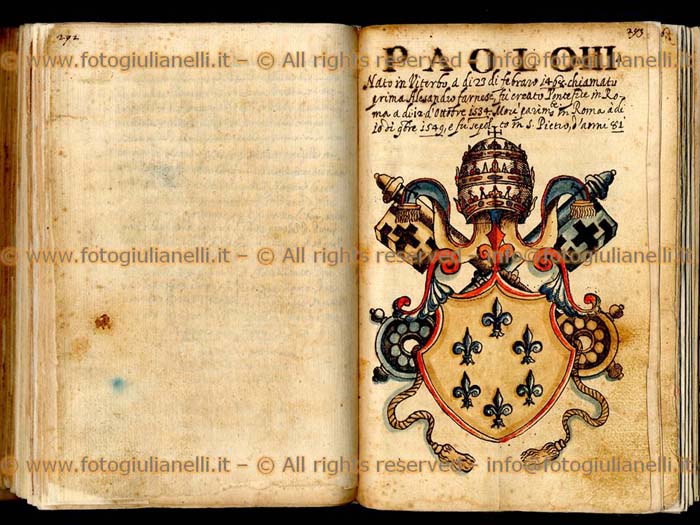 292
293
PAOLO III
Nato in Viterbo, a di 23 di febraro 1468 chiamato
prima Alesandro farnese, fù creato Pontefice in Ro-
ma a di 12 d'Ottobre 1534. Morì parimte in Roma à di
10 di 9bre 1549, e fu sepolto in S. Pietro, d'anni 81
© www.fotogiulianelli.it – © All rights reserved – info@fotogiulianelli.it
© www.fotogiulianelli.it – © All rights reserved – info@fotogiulianelli.it
© www.fotogiulianelli.it – © All rights reserved – info@fotogiulianelli.it